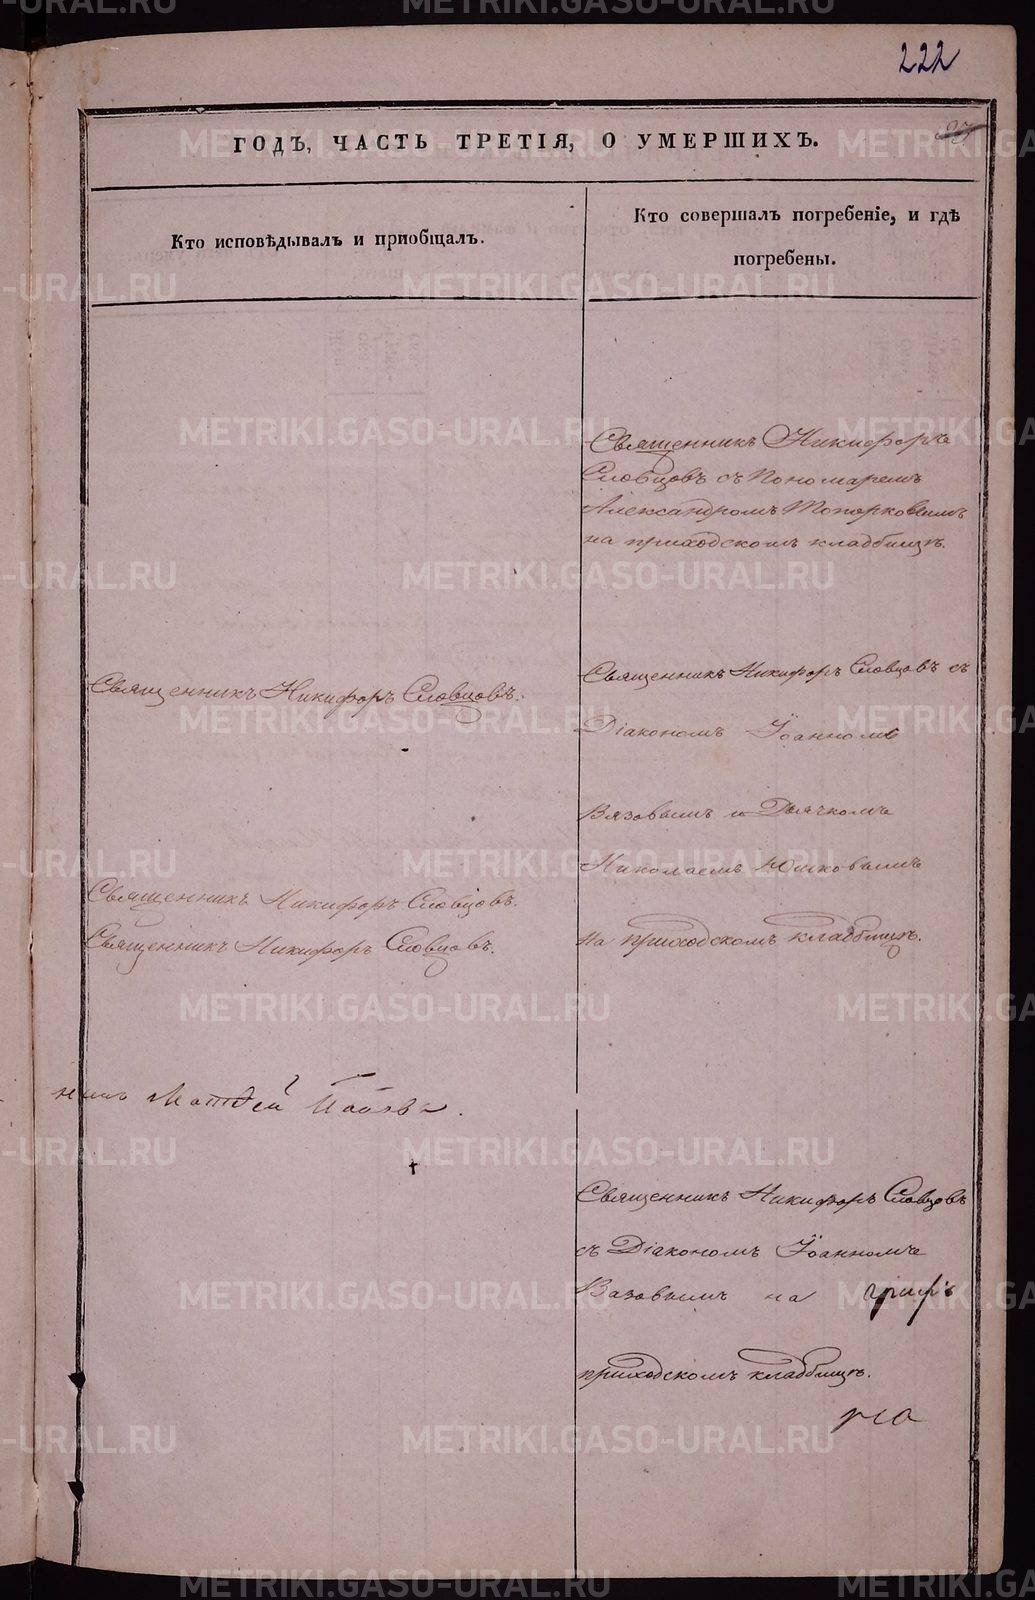 222
ГОДЪ, ЧАСТЬ ТРЕТІЯ, О УМЕРШИХЪ.
Кто исповѣдывалъ и пріобщалъ.
Кто совершалъ погребеніе, и гдѣ
погребены.
Священникъ Никифоръ
Словцовъ съ Пономаремъ
Александромъ Топорковымъ
на приходскомъ кладбищѣ.
Священникъ Никифоръ Словцовъ.
Священникъ Никифоръ Словцовъ съ
Діакономъ Іоанномъ
Вязовымъ и Дьячкомъ
Николаемъ
Священникъ Никифоръ Словцовъ.
Священникъ Никифоръ Словцовъ.
на приходскомъ кладбищѣ.
никъ Матѳей
Священникъ Никифоръ Словцовъ
съ Діакономъ Іоанномъ
Вязовымъ на
приходскомъ кладбищѣ.
METRIKI.GASO-URAL.RU